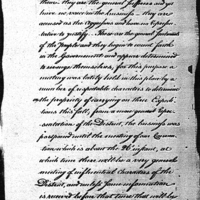 there. they are the general sufferers and yet
have no voice in the business — they are
aroused as the Oppressors and have no Oppor-
tunity to justify. There are the great Interests
of the People and they begin to want faith
in the Government and appear determined
to revenge themselves, for this purpose a
meeting was lately held in this place by a
number of respectable characters to determine
on the propriety of carrying on three Expedi-
tions this fall, from a more general Repre-
sentation of the District, the business was
postponed until the meeting of our Conven-
tion which is about the 26th instant, at
which time there will be a very general
meeting of influential Characters of the
District, and unless some information
is received before that time that will be